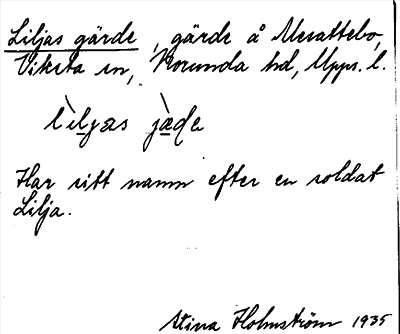 Liljas gärde, gärde å Mesattebo,
Viksta sn, Norunda hd, Upps. l.
lìljas jàde
Har sitt namn efter en soldat
Lilja.
Stina Holmström 1935